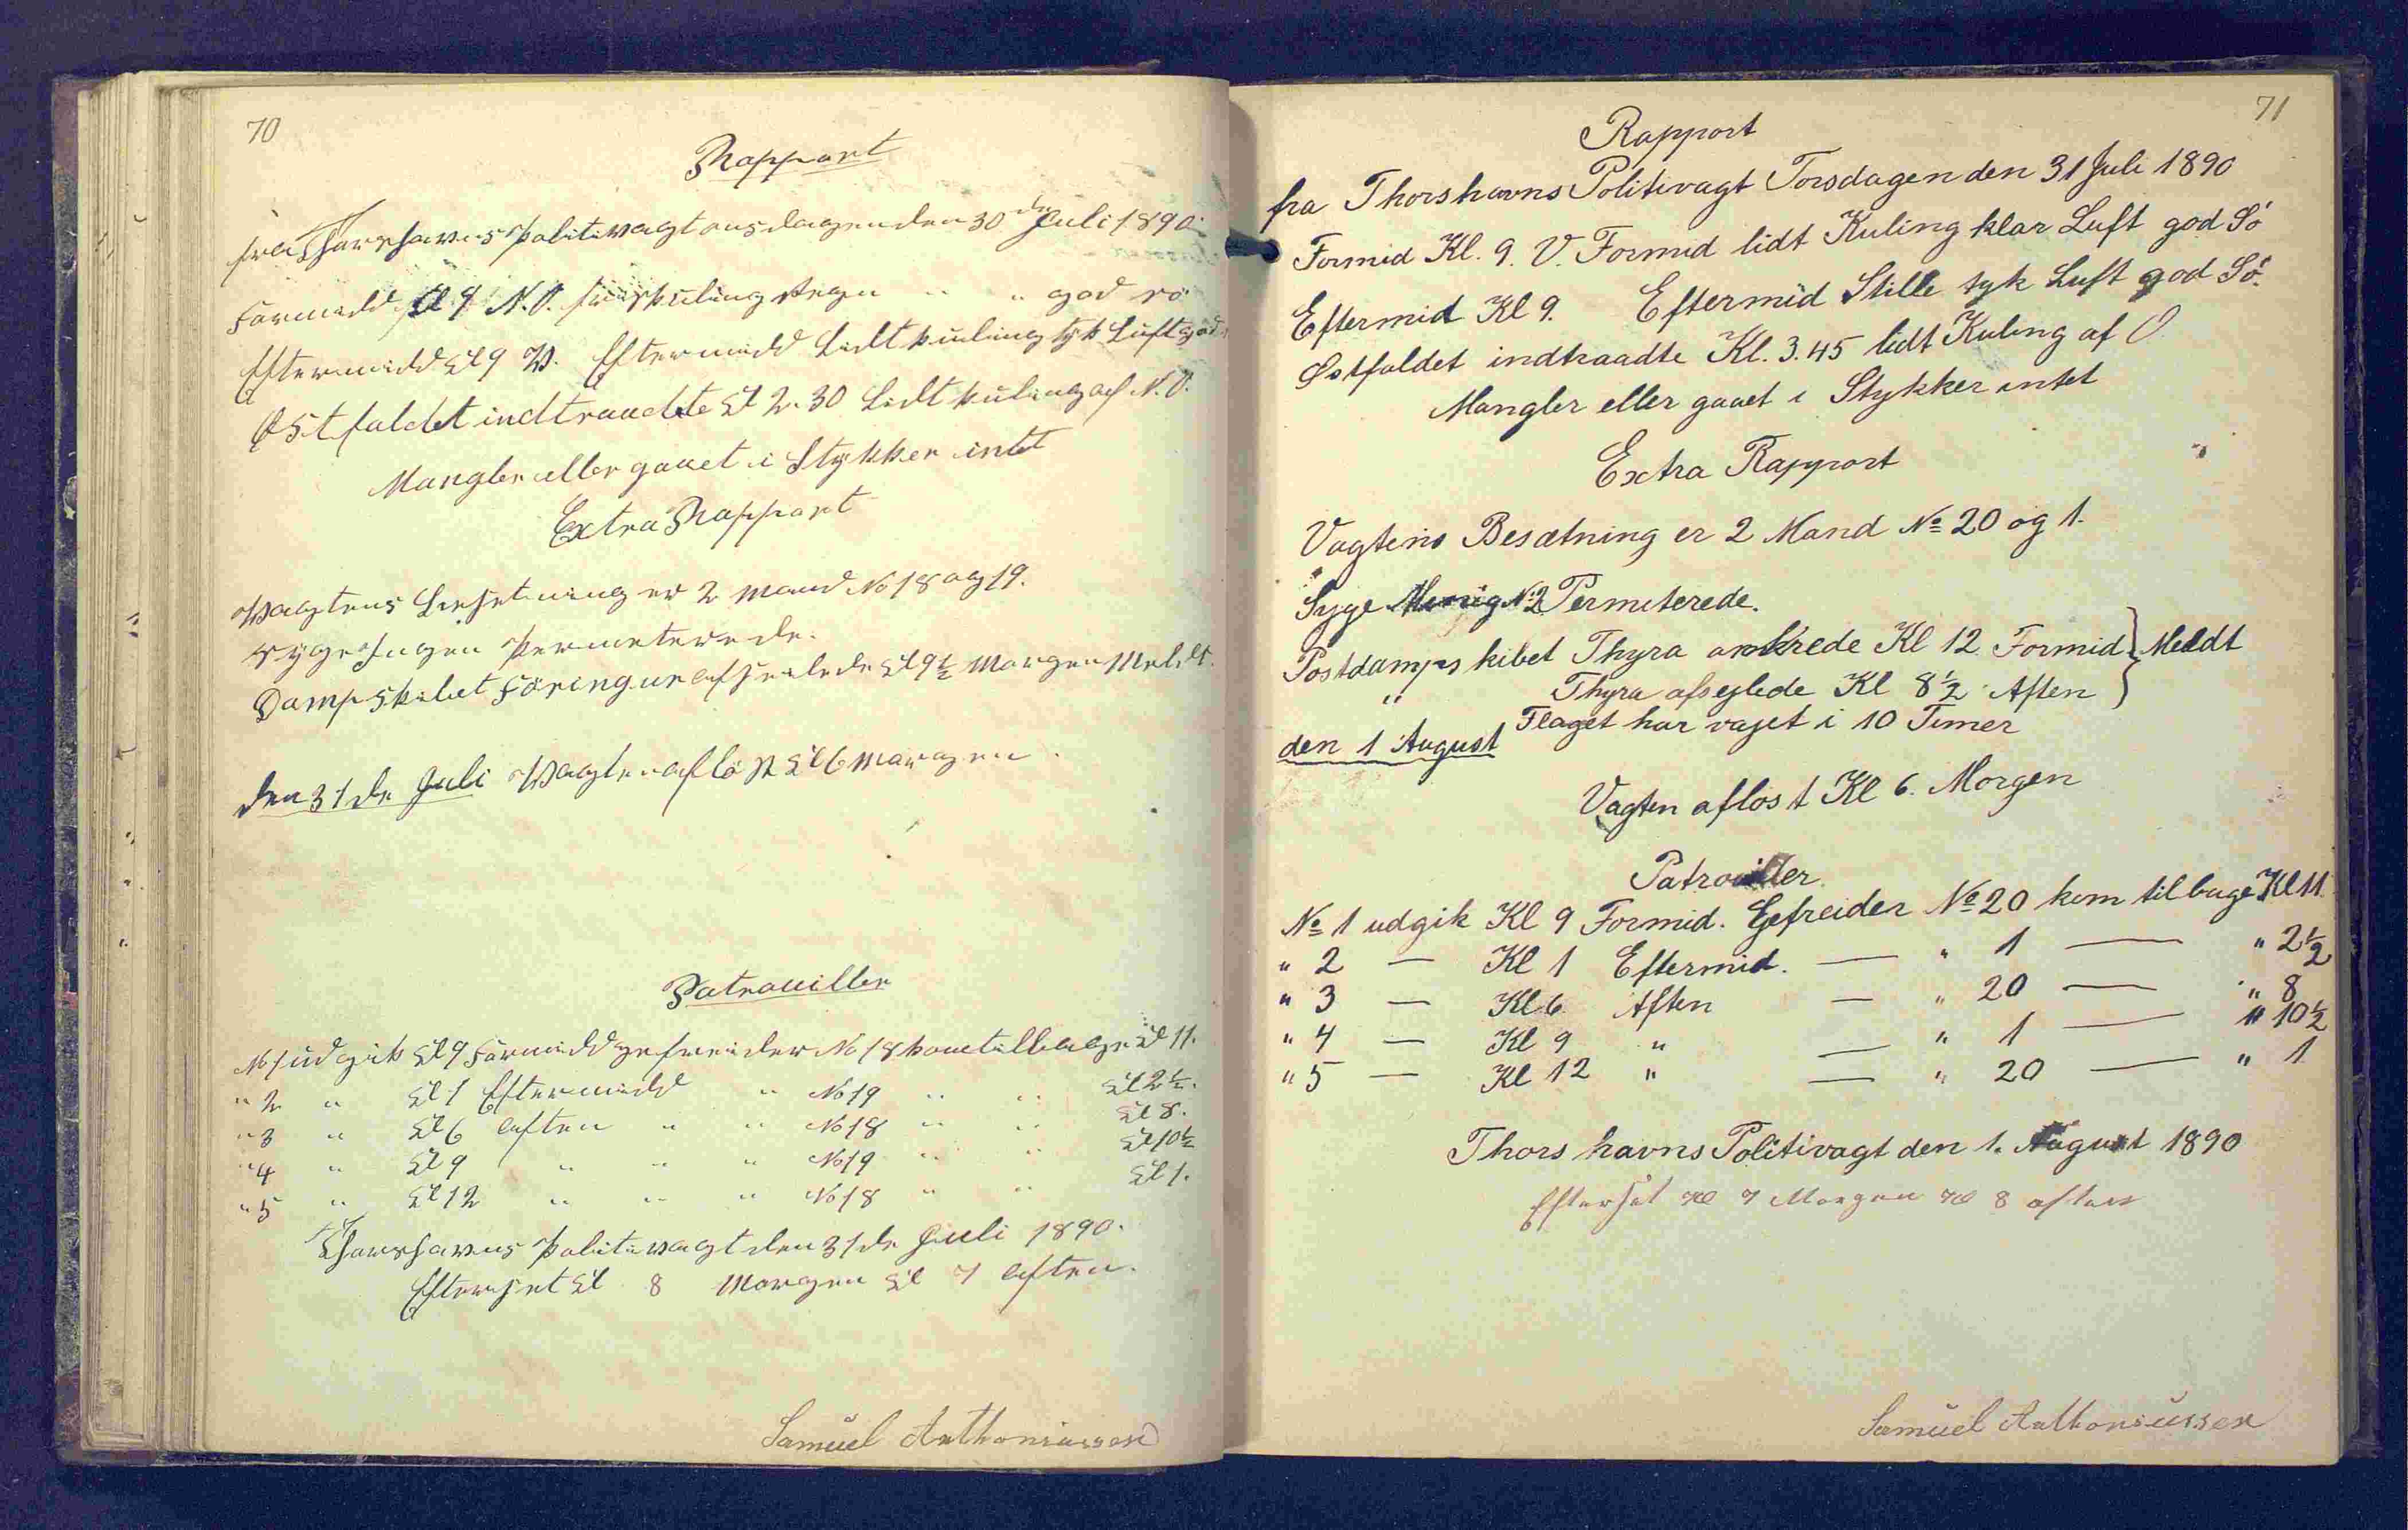 70
Rapport
fra Thorshavns Politivagt onsdagen den 30 de Juli 1890.
Formidd Kl 9 N.O. friskkuling Regn " " god sö
Eftermidd Kl 9 V. Eftermidd Lidt kuling tyk Luft god
Østfaldet indtraadte Kl 2.30 Lidt kuling af N.O.
Mangler eller gaaet i Stykker intet
Extra Rapport
Vagtens Besetning er 2 mand No 18 og 19.
syge Ingen Permeterede.
Dampskibet Föringur afseilede Kl 9½ Morgen Meldt.
den 31 de Juli Vagten aflöst Kl 6 Morgen
Patrouiller
No 1 udgik Kl 9 Formidd gefreider No 18 kom tilbage Kl 11.
" 2 " Kl 1 Eftermidd " No 19 " " Kl 2½.
" 3 " Kl 6 aften " " No 18 " " Kl 8.
" 4 " Kl 9 " " " No 19 " " Kl 10½
" 5 " Kl 12 " " " No 18 " " Kl 1.
Thorshavns Politivagt den 31 de Juli 1890.
Efterset Kl 8 Morgen Kl 7 aften.
Samuel Anthoniussen
71
Rapport
fra Thorshavns Politivagt Torsdagen den 31 Juli 1890
Formid Kl. 9. V. Formid lidt Kuling klar Luft god Sö
Eftermid Kl 9. Eftermid Stille tyk Luft god Sö.
Østfaldet indtraadte Kl. 3.45 lidt Kuling af O.
Mangler eller gaaet i Stykker intet
Extra Rapport
Vagtens Besætning er 2 Mand No 20 og 1.
Syge No 2 Permiterede.
Postdampskibet Thyra ankrede Kl 12 Formid } Meldt
" Thyra afsejlede Kl 8½ Aften
Flaget har vajet i 10 Timer
den 1 August
Vagten aflost Kl 6. Morgen
Patrouiller
No 1 udgik Kl 9 Formid. Gefreider No 20 kom tilbage Kl 11.
" 2 — Kl 1 Eftermid. — " 1 — " 2½
" 3 — Kl 6 Aften — " 20 — " 8
" 4 — Kl 9 " — " 1 — " 10½
" 5 — Kl 12 " — " 20 — " 1
Thorshavns Politivagt den 1. August 1890
Efterset Kl 7 Morgen Kl 8 aften
Samuel Anthoniussen